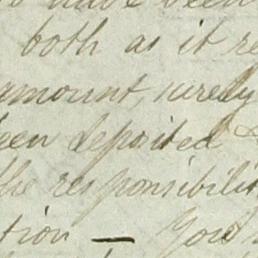 to have been
both as it re
amount, surely
been deposited &
the responsibilit
tion — You